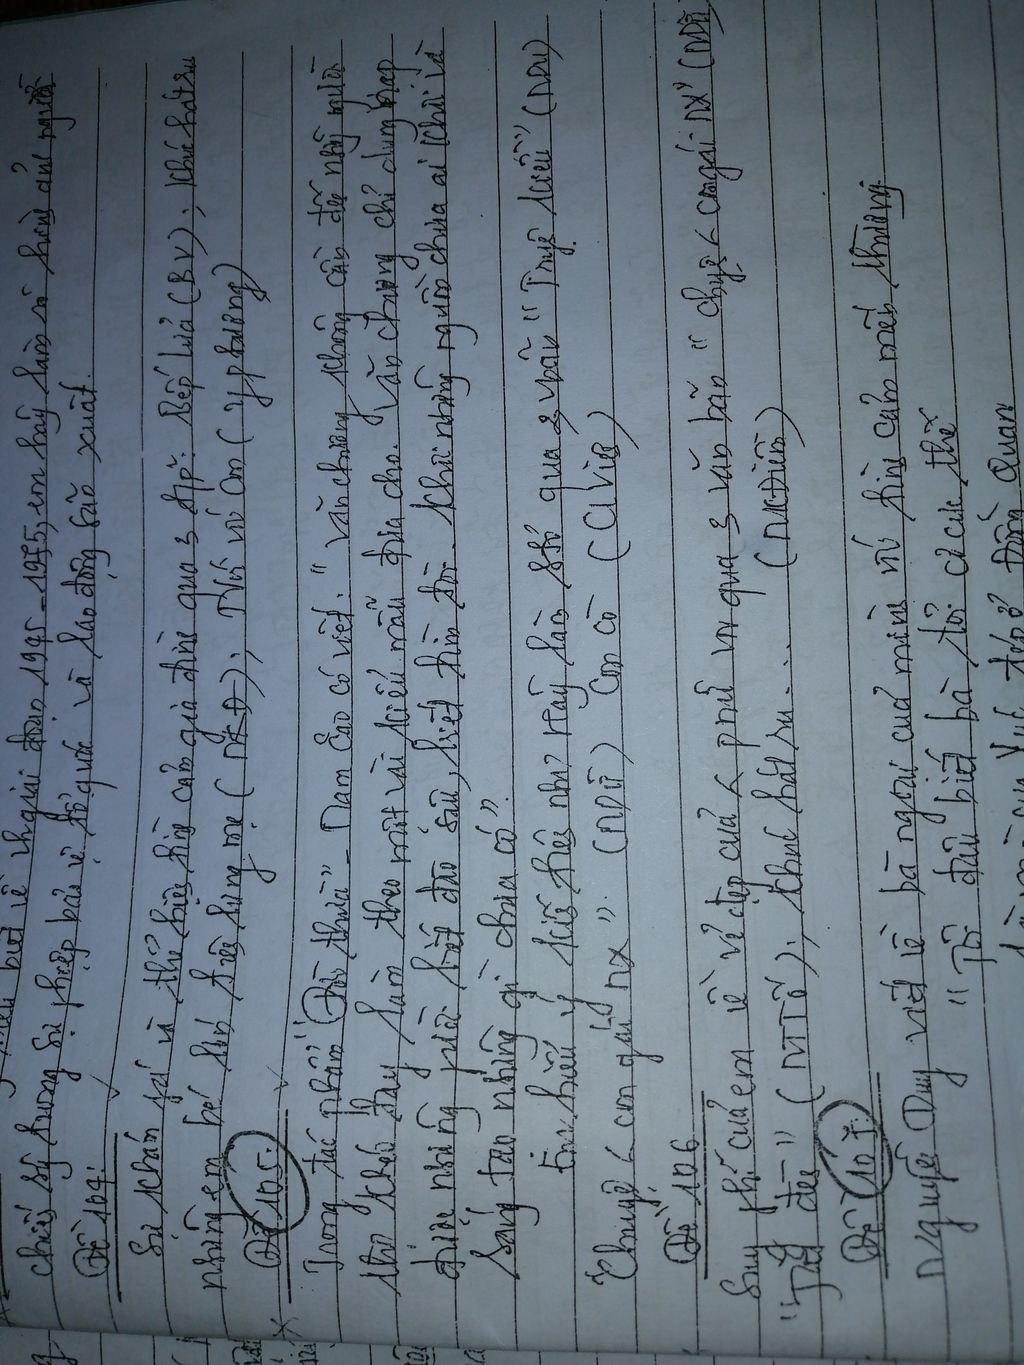 biết về thơ giai đoạn 1945-1975, em hãy làm rõ hình ảnh người
chiến sỹ trong sự nghiệp bảo vệ tổ quốc và lao động sản xuất.
Đề 104:
Sự khám phá và thể hiện tình cảm gia đình qua 3 tp: Bếp lửa (BV), Khúc hát ru
những em bé lớn trên lưng mẹ (NKĐ), Nói với con (Y phương)
Đề 105:
Trong tác phẩm "Đời thừa" - Nam Cao có viết: "Văn chương không cần đến những người
thợ khéo tay làm theo một vài kiểu mẫu đưa cho. Văn chương chỉ dung nạp
được những người biết đào sâu, biết tìm tòi. Khơi những nguồn chưa ai khơi và
sáng tạo những gì chưa có".
Em hiểu ý kiến trên như Hãy làm sáng tỏ qua 2 vbản "Truyện Kiều" (NDu)
Chuyện con gái NX". (NDữ) Con cò (CLViên)
Đề 106
Suy nghĩ của em về vẻ đẹp của pnữ VN qua 3 văn bản "chuyện congái NX" (NDữ)
"Tắt đèn" (NTTố), Khúc hát ru... (NKĐiềm)
Đề 107:
Nguyễn Duy viết về bà ngoại của mình với tình cảm mến thương
"Tôi đâu biết bà tôi cơ cực thế
Đồng Quan